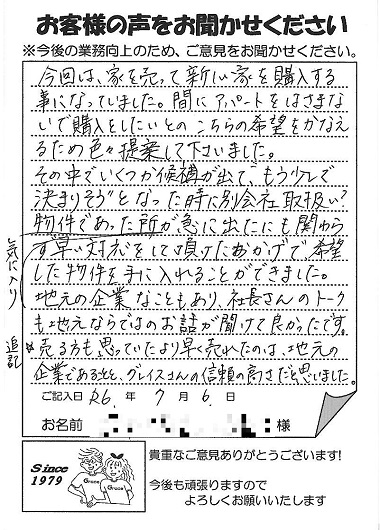 お客様の声をお聞かせください
※今後の業務向上のため、ご意見をお聞かせください。
今回は、家を売って新しい家を購入する
事になっていました。間にアパートをはさまな
いで購入をしたいとのこちらの希望をかなえ
るため色々提案して下さいました。
その中でいくつか候補が出て、もう少しで
決まりそう"となった時に別会社取扱い?
物件であった所が急に出たにも関わら
ず早い対応をして頂けたおかげで、希望
した物件を手に入れることができました。
地元の企業なこともあり、社長さんのトーク
も地元ならではのお話が聞けて良かったです。
売る方も思っていたより早く売れたのは、地元の
企業であると、グレイスさんの信頼の高さだと思いました。
気に入り
追記
ご記入日 R6. 年 7 月 6. 日
お名前 様
Since
1979
Grace
Grace
貴重なご意見ありがとうございます!
今後も頑張りますので
よろしくお願いいたします